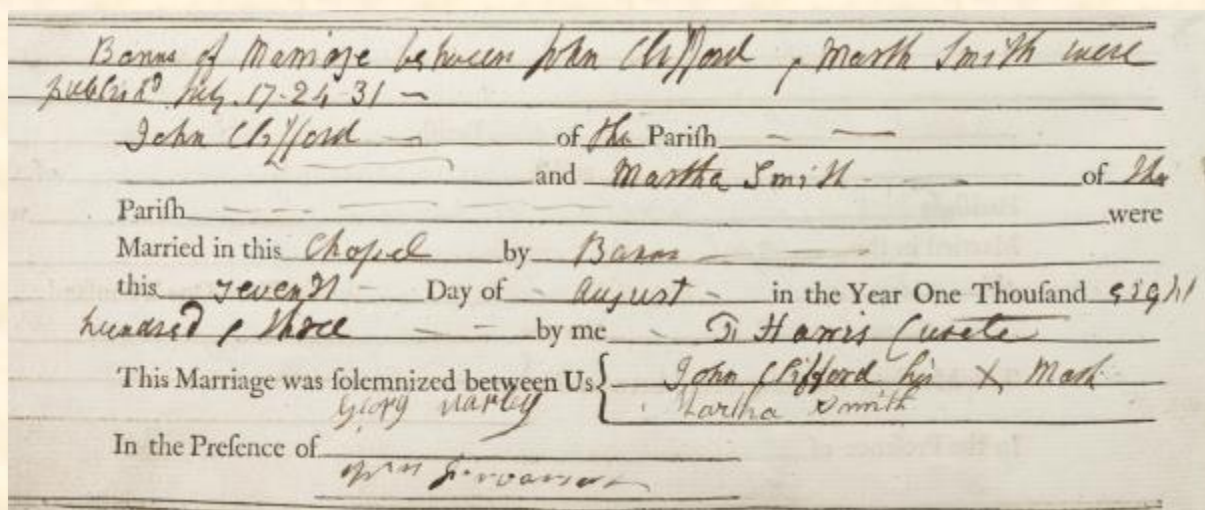 Banns of Marriage between John Clifford & Marth Smith were
publish'd July. 17-24-31 —
John Clifford — of the Pariſh — —
— and Martha Smith — — of the
Pariſh — — — — — were
Married in this Chapel by Banns — — —
this Seventh — Day of - August - in the Year One Thouſand eight
hundred & three — — by me - Harris Curate
This Marriage was ſolemnized between Us { John Clifford his X Mark
Georg Martha Smith
In the Preſence of
Wm